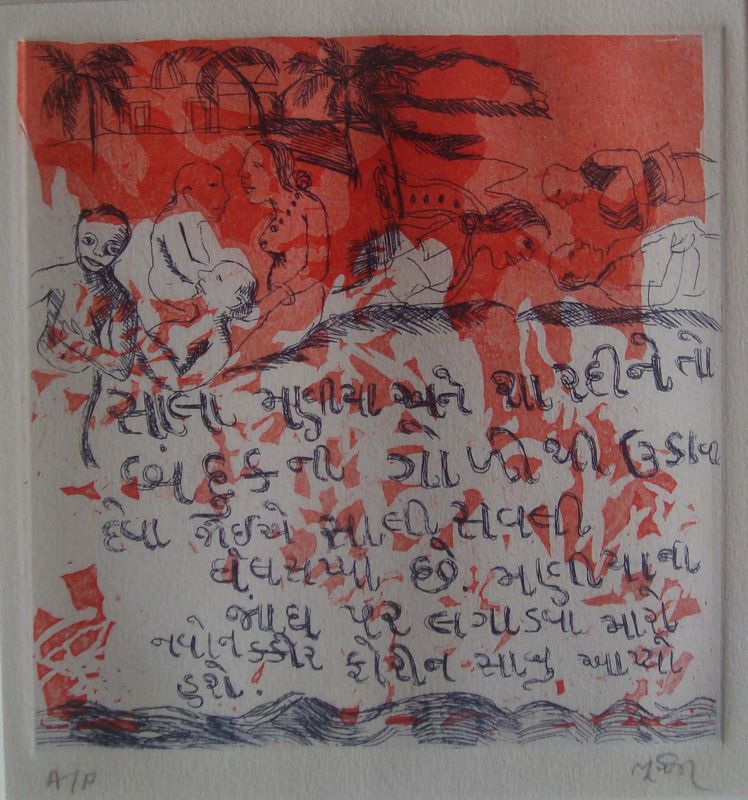 સાલા મણીયા અને શારદીને તો
બંદૂકની ગોળીથી ઉડાવી
દેવા જોઈએ સાલી સવલી
છે. મણીયાના
જાંઘ પર લગાડવા મારો
નવોનક્કોર ફોરીન સાબુ આપ્યો
હશે.
A/P